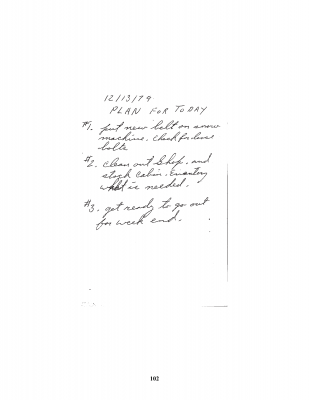 12/13/79
PLAN FOR TODAY
#1. put new belt on snow
machine. Check for loose
bolts
#2. clean out Shop. and
stock cabin. Inventory
what is needed.
#3. get ready to go out
for week end.
102